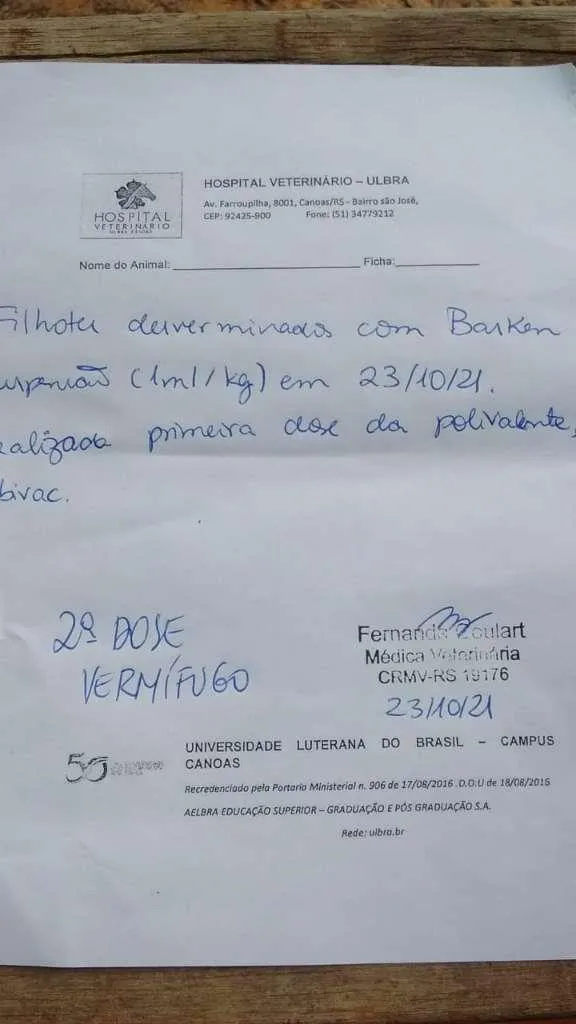 HOSPITAL
VETERINÁRIO
ULBRA CANOAS
HOSPITAL VETERINÁRIO – ULBRA
Av. Farroupilha, 8001, Canoas/RS - Bairro são José,
CEP: 92425-900 Fone: (51) 34779212
Nome do Animal: Ficha:
Filhotes desverminados com Basken
uspensão (1ml/kg) em 23/10/21.
ealizada primeira dose da polivalente,
bivac.
2ª DOSE
VERMÍFUGO
Fernanda Goulart
Médica Veterinária
CRMV-RS 19176
23/10/21
50
UNIVERSIDADE LUTERANA DO BRASIL – CAMPUS
CANOAS
Recredenciado pela Portaria Ministerial n. 906 de 17/08/2016 .D.O.U de 18/08/2016
AELBRA EDUCAÇÃO SUPERIOR – GRADUAÇÃO E PÓS GRADUAÇÃO S.A.
Rede: ulbra.br